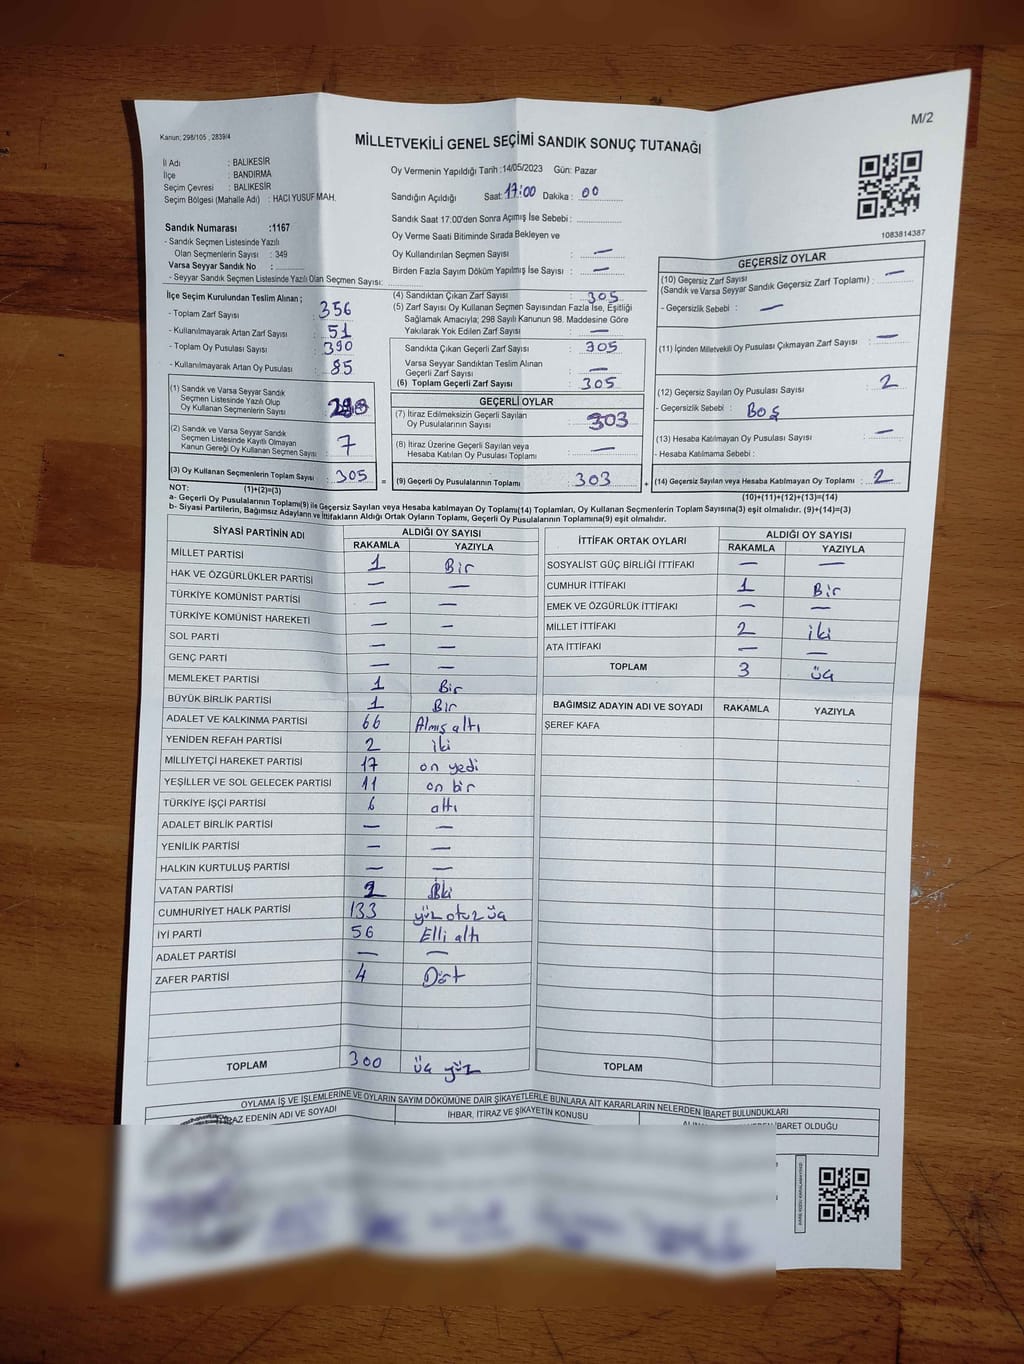 M/2
Kanun; 298/105 , 2839/4
MİLLETVEKİLİ GENEL SEÇİMİ SANDIK SONUÇ TUTANAĞI
İl Adı : BALIKESİR
İlçe : BANDIRMA
Seçim Çevresi : BALIKESİR
Seçim Bölgesi (Mahalle Adı) : HACI YUSUF MAH.
Sandık Numarası :1167
- Sandık Seçmen Listesinde Yazılı
Olan Seçmenlerin Sayısı : 349
Varsa Seyyar Sandık No :
- Seyyar Sandık Seçmen Listesinde Yazılı Olan Seçmen Sayısı:
Oy Vermenin Yapıldığı Tarih :14/05/2023 Gün: Pazar
Sandığın Açıldığı Saat: 17:00 Dakika : 00
Sandık Saat 17:00'den Sonra Açımış İse Sebebi :
Oy Verme Saati Bitiminde Sırada Bekleyen ve
Oy Kullandırılan Seçmen Sayısı : —
Birden Fazla Sayım Döküm Yapılmış İse Sayısı : —
1083814387
İlçe Seçim Kurulundan Teslim Alınan ;
- Toplam Zarf Sayısı : 356
- Kullanılmayarak Artan Zarf Sayısı : 51
- Toplam Oy Pusulası Sayısı : 390
- Kullanılmayarak Artan Oy Pusulası : 85
(1) Sandık ve Varsa Seyyar Sandık
Seçmen Listesinde Yazılı Olup
Oy Kullanan Seçmenlerin Sayısı : 298
(2) Sandık ve Varsa Seyyar Sandık
Seçmen Listesinde Kayıtlı Olmayan
Kanun Gereği Oy Kullanan Seçmen Sayısı : 7
(3) Oy Kullanan Seçmenlerin Toplam Sayısı : 305
(4) Sandıktan Çıkan Zarf Sayısı : 305
(5) Zarf Sayısı Oy Kullanan Seçmen Sayısından Fazla İse, Eşitliği
Sağlamak Amacıyla; 298 Sayılı Kanunun 98. Maddesine Göre
Yakılarak Yok Edilen Zarf Sayısı : —
Sandıkta Çıkan Geçerli Zarf Sayısı : 305
Varsa Seyyar Sandıktan Teslim Alınan
Geçerli Zarf Sayısı : —
(6) Toplam Geçerli Zarf Sayısı : 305
GEÇERLİ OYLAR
(7) İtiraz Edilmeksizin Geçerli Sayılan
Oy Pusulalarının Sayısı : 303
(8) İtiraz Üzerine Geçerli Sayılan veya
Hesaba Katılan Oy Pusulası Toplamı : —
= (9) Geçerli Oy Pusulalarının Toplamı : 303
GEÇERSİZ OYLAR
(10) Geçersiz Zarf Sayısı
(Sandık ve Varsa Seyyar Sandık Geçersiz Zarf Toplamı) : —
- Geçersizlik Sebebi : —
(11) İçinden Milletvekili Oy Pusulası Çıkmayan Zarf Sayısı : —
(12) Geçersiz Sayılan Oy Pusulası Sayısı : 2
- Geçersizlik Sebebi : BOŞ
(13) Hesaba Katılmayan Oy Pusulası Sayısı : —
- Hesaba Katılmama Sebebi :
+ (14) Geçersiz Sayılan veya Hesaba Katılmayan Oy Toplamı : 2
NOT: (1)+(2)=(3) (10)+(11)+(12)+(13)=(14)
a- Geçerli Oy Pusulalarının Toplamı(9) ile Geçersiz Sayılan veya Hesaba katılmayan Oy Toplamı(14) Toplamları, Oy Kullanan Seçmenlerin Toplam Sayısına(3) eşit olmalıdır. (9)+(14)=(3)
b- Siyasi Partilerin, Bağımsız Adayların ve İttifakların Aldığı Oyların Toplamı, Geçerli Oy Pusulalarının Toplamına(9) eşit olmalıdır.
SİYASİ PARTİNİN ADI ALDIĞI OY SAYISI
RAKAMLA YAZIYLA
MİLLET PARTİSİ 1 Bir
HAK VE ÖZGÜRLÜKLER PARTİSİ — —
TÜRKİYE KOMÜNİST PARTİSİ — —
TÜRKİYE KOMÜNİST HAREKETİ — —
SOL PARTİ — —
GENÇ PARTİ — —
MEMLEKET PARTİSİ 1 Bir
BÜYÜK BİRLİK PARTİSİ 1 Bir
ADALET VE KALKINMA PARTİSİ 66 Almış altı
YENİDEN REFAH PARTİSİ 2 iki
MİLLİYETÇİ HAREKET PARTİSİ 17 on yedi
YEŞİLLER VE SOL GELECEK PARTİSİ 11 on bir
TÜRKİYE İŞÇİ PARTİSİ 6 altı
ADALET BİRLİK PARTİSİ — —
YENİLİK PARTİSİ — —
HALKIN KURTULUŞ PARTİSİ — —
VATAN PARTİSİ 2 İki
CUMHURİYET HALK PARTİSİ 133 yüz otuz üç
İYİ PARTİ 56 Elli altı
ADALET PARTİSİ — —
ZAFER PARTİSİ 4 Dört
TOPLAM 300 üç yüz
İTTİFAK ORTAK OYLARI ALDIĞI OY SAYISI
RAKAMLA YAZIYLA
SOSYALİST GÜÇ BİRLİĞİ İTTİFAKI — —
CUMHUR İTTİFAKI 1 Bir
EMEK VE ÖZGÜRLÜK İTTİFAKI — —
MİLLET İTTİFAKI 2 iki
ATA İTTİFAKI — —
TOPLAM 3 üç
BAĞIMSIZ ADAYIN ADI VE SOYADI RAKAMLA YAZIYLA
ŞEREF KAFA
TOPLAM
OYLAMA İŞ VE İŞLEMLERİNE VE OYLARIN SAYIM DÖKÜMÜNE DAİR ŞİKAYETLERLE BUNLARA AİT KARARLARIN NELERDEN İBARET BULUNDUKLARI
EDENİN ADI VE SOYADI İHBAR, İTİRAZ VE ŞİKAYETİN KONUSU İBARET OLDUĞU